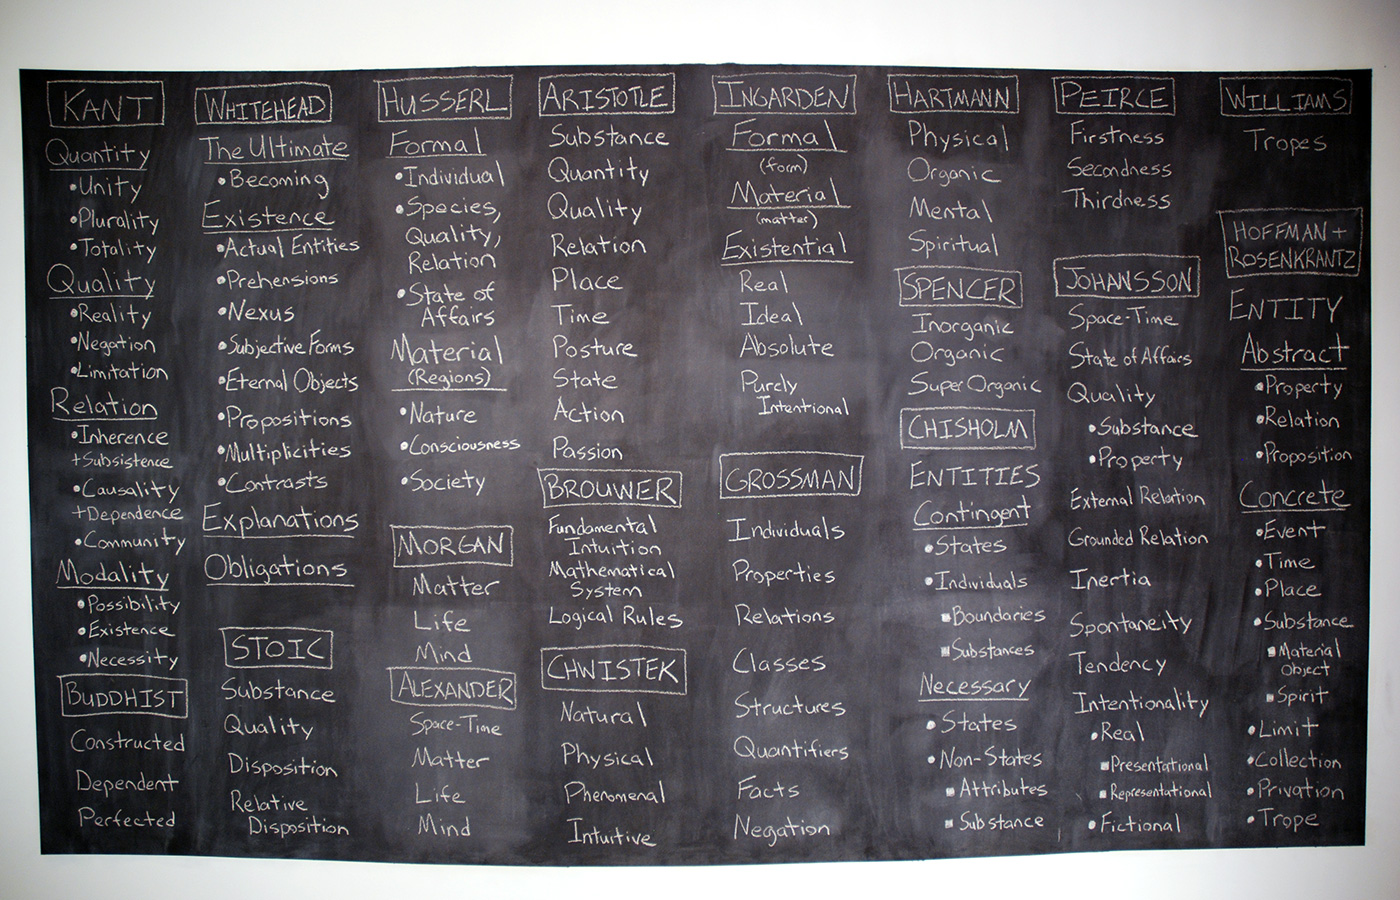 KANT
Quantity
•Unity
•Plurality
•Totality
Quality
•Reality
•Negation
•Limitation
Relation
•Inherence
+Subsistence
•Causality
+Dependence
•Community
Modality
•Possibility
•Existence
•Necessity
BUDDHIST
Constructed
Dependent
Perfected
WHITEHEAD
The Ultimate
•Becoming
Existence
•Actual Entities
•Prehensions
•Nexus
•Subjective Forms
•Eternal Objects
•Propositions
•Multiplicities
•Contrasts
Explanations
Obligations
STOIC
Substance
Quality
Disposition
Relative
Disposition
HUSSERL
Formal
•Individual
•Species,
Quality,
Relation
•State of
Affairs
Material
(Regions)
•Nature
•Consciousness
•Society
MORGAN
Matter
Life
Mind
ALEXANDER
Space-Time
Matter
Life
Mind
ARISTOTLE
Substance
Quantity
Quality
Relation
Place
Time
Posture
State
Action
Passion
BROUWER
Fundamental
Intuition
Mathematical
System
Logical Rules
CHWISTEK
Natural
Physical
Phenomenal
Intuitive
INGARDEN
Formal
(form)
Material
(matter)
Existential
Real
Ideal
Absolute
Purely
Intentional
GROSSMAN
Individuals
Properties
Relations
Classes
Structures
Quantifiers
Facts
Negation
HARTMANN
Physical
Organic
Mental
Spiritual
SPENCER
Inorganic
Organic
Super Organic
CHISHOLM
ENTITIES
Contingent
•States
•Individuals
▪Boundaries
▪Substances
Necessary
•States
•Non-States
▪Attributes
▪Substance
PEIRCE
Firstness
Secondness
Thirdness
JOHANSSON
Space-Time
State of Affairs
Quality
•Substance
•Property
External Relation
Grounded Relation
Inertia
Spontaneity
Tendency
Intentionality
•Real
▪Presentational
▪Representational
•Fictional
WILLIAMS
Tropes
HOFFMAN +
ROSENKRANTZ
ENTITY
Abstract
•Property
•Relation
•Proposition
Concrete
•Event
•Time
•Place
•Substance
▪Material
Object
▪Spirit
•Limit
•Collection
•Privation
•Trope